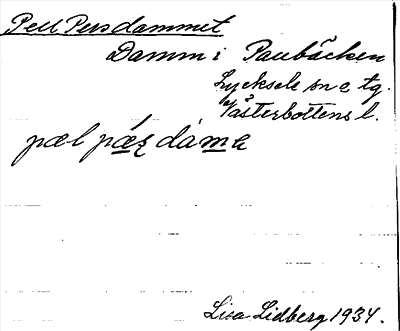 Pell Persdammet
Damm i Paubäcken
Lycksele sn o tg.
Västerbottens l.
pæl pǽʂ dámə
Lisa Lidberg 1934.